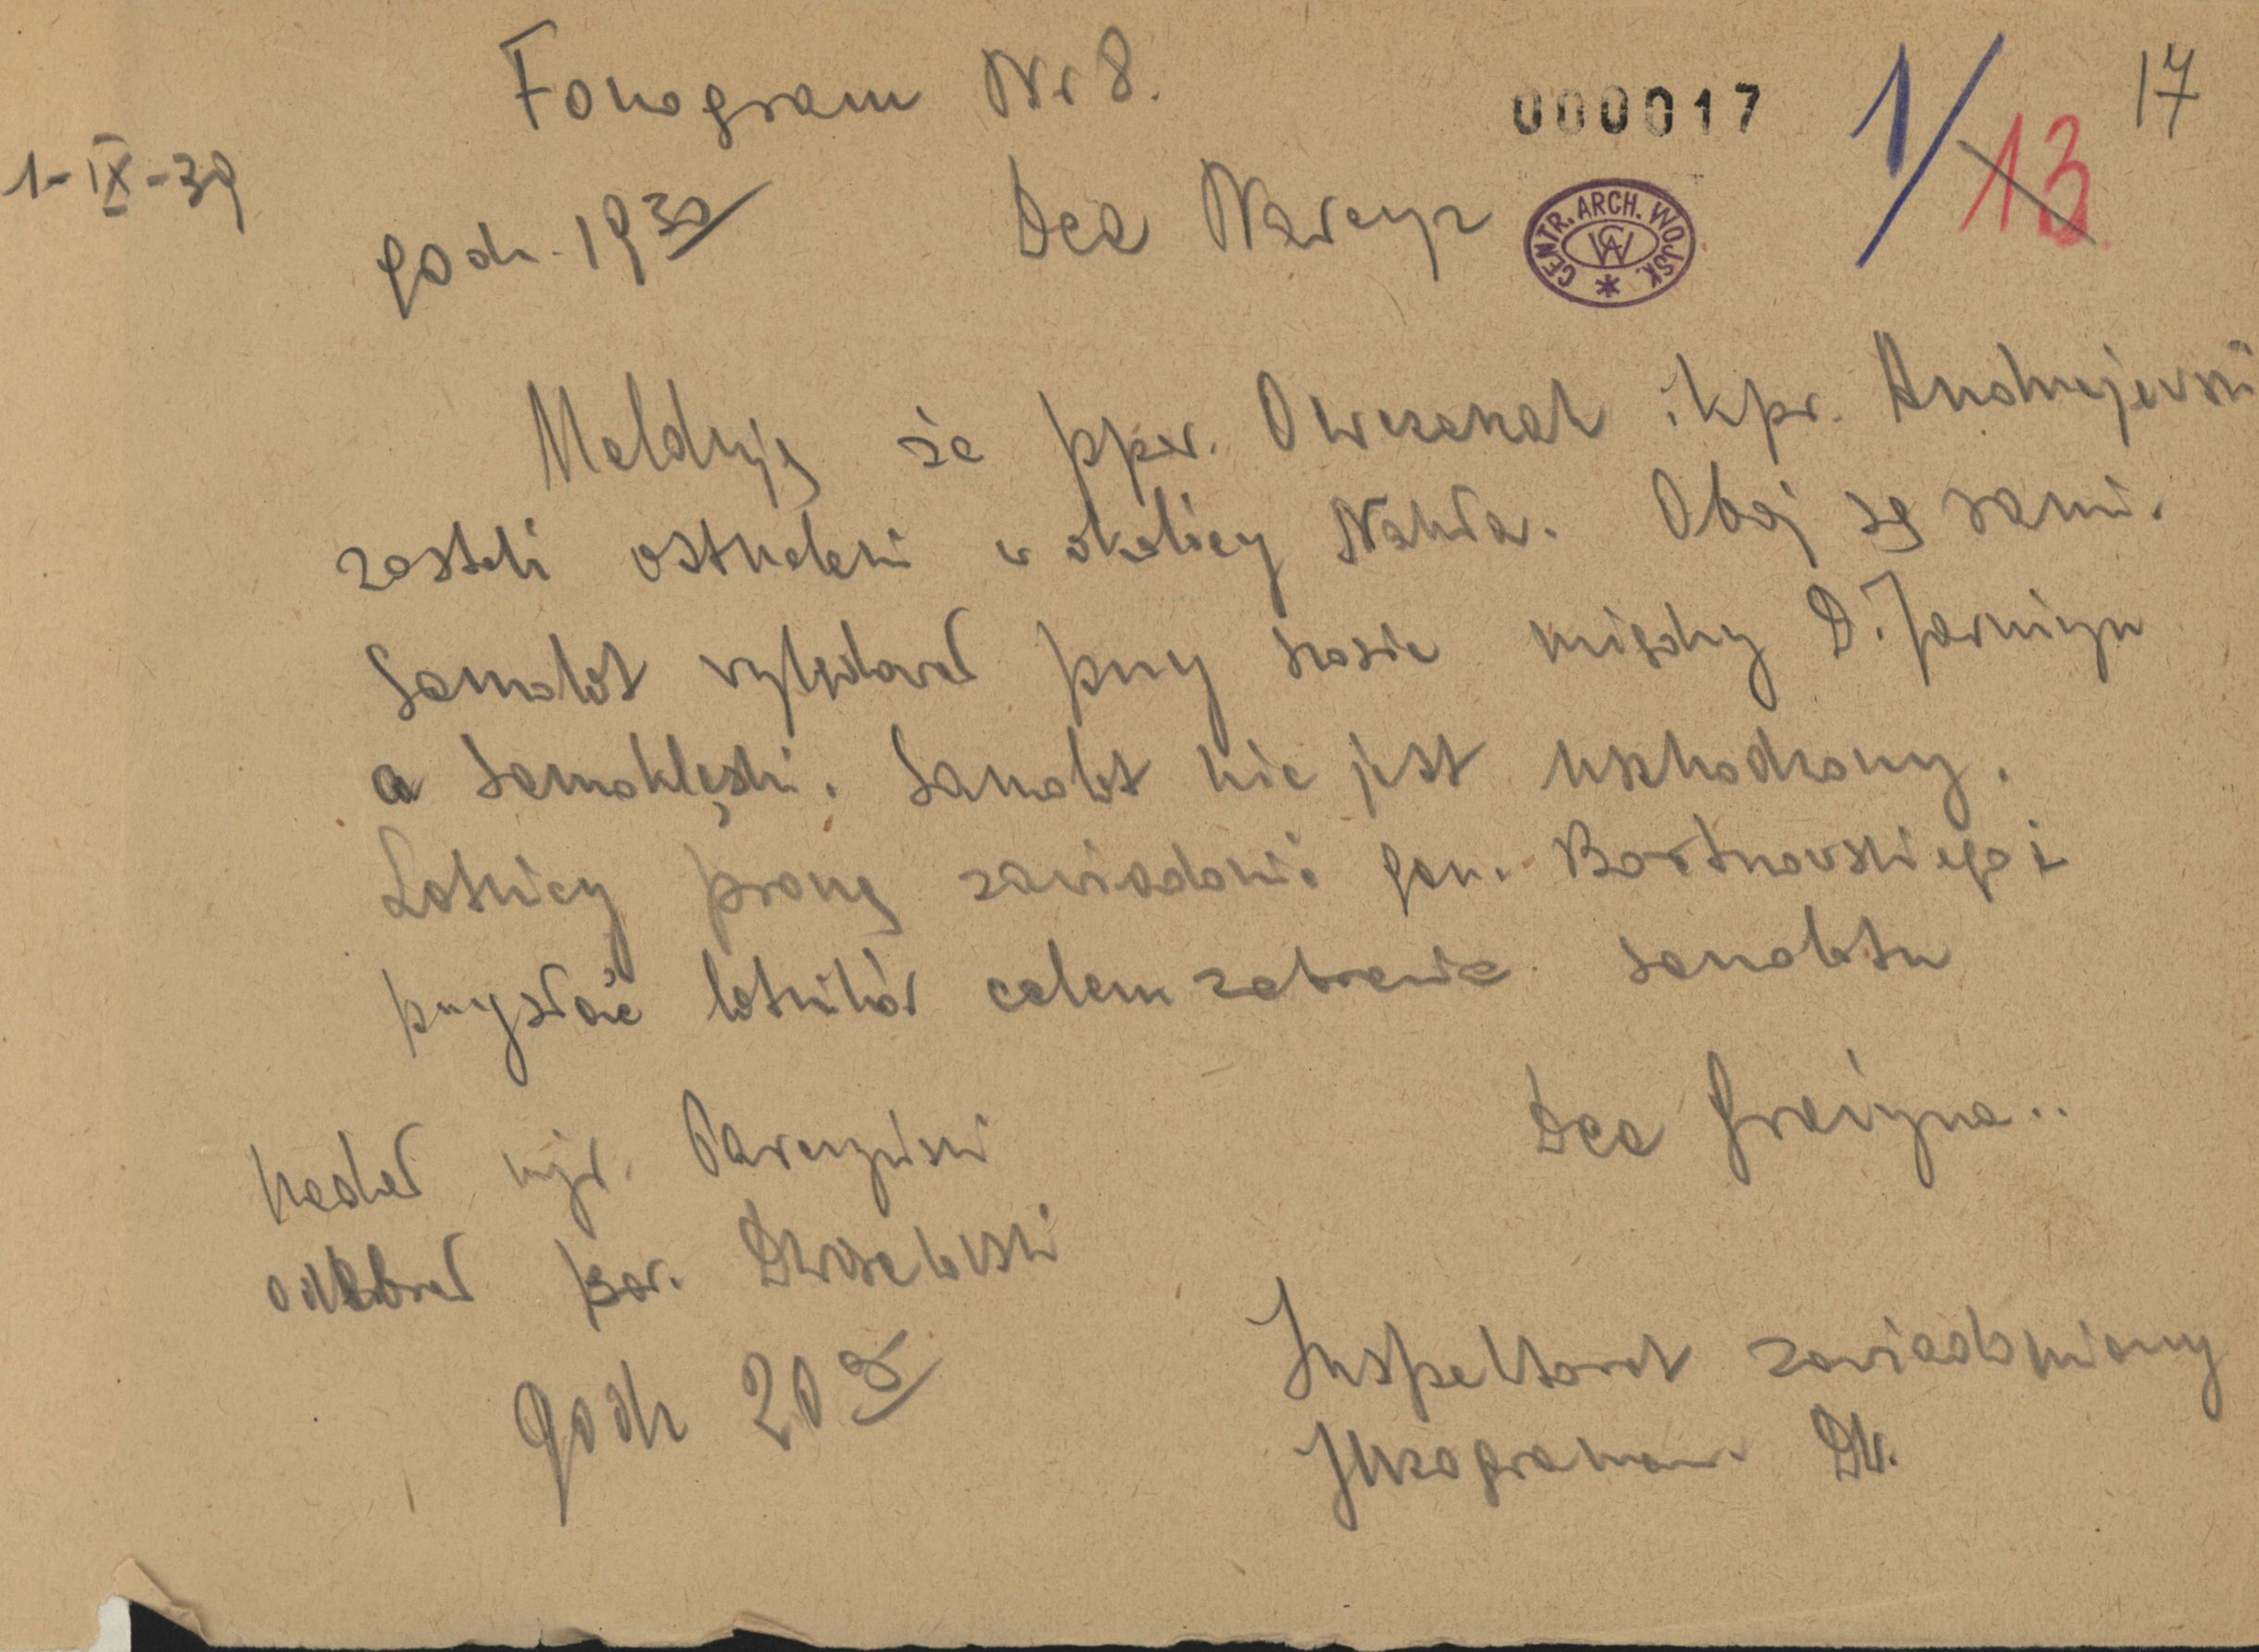 Fonogram Nr 8.
000017
1/13
17
1-IX-39
godz. 19 30
Dca Narcyz
CENTR. ARCH. WOJSK.
CAW
Melduję że ppor. Owczarzak i kpr. Andrzejewski
zostali ostrzelani w okolicy Nakła. Obaj są ranni.
Samolot wylądował przy szosie między D. Jarużyn
a Samoklęski. Samolot nie jest uszkodzony.
Lotnicy proszą zawiadomić gen. Bortnowskiego i
przysłać lotników celem zabrania samolotu
Dca Grażyna..
Nadał mjr. Parczyński
odebrał por.
godz 20
Inspektorat zawiadomiony
Juzogramem. Dw.